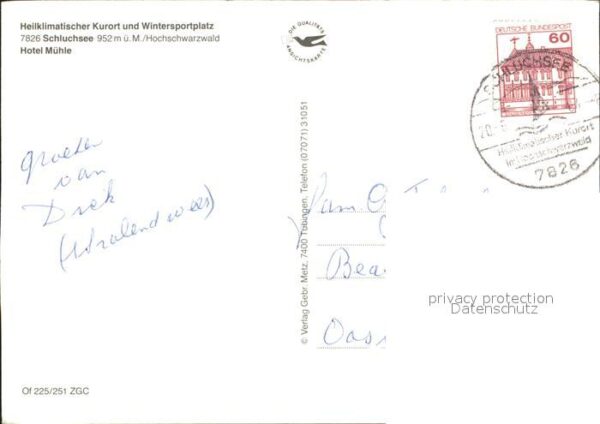 Heilklimatischer Kurort und Wintersportplatz
7826 Schluchsee 952 m ü. M./Hochschwarzwald
Hotel Mühle
DIE QUALITÄTS
ANSICHTSKARTE
DEUTSCHE BUNDESPOST
60
SCHLUCHSEE
20.
Heilklimatischer Kurort
im Hochschwarzwald
7826
groeten
van
Dick
© Verlag Gebr. Metz, 7400 Tübingen, Telefon (07071) 31051
Fam. G
Bea
Oos
privacy protection
Datenschutz
Of 225/251 ZGC